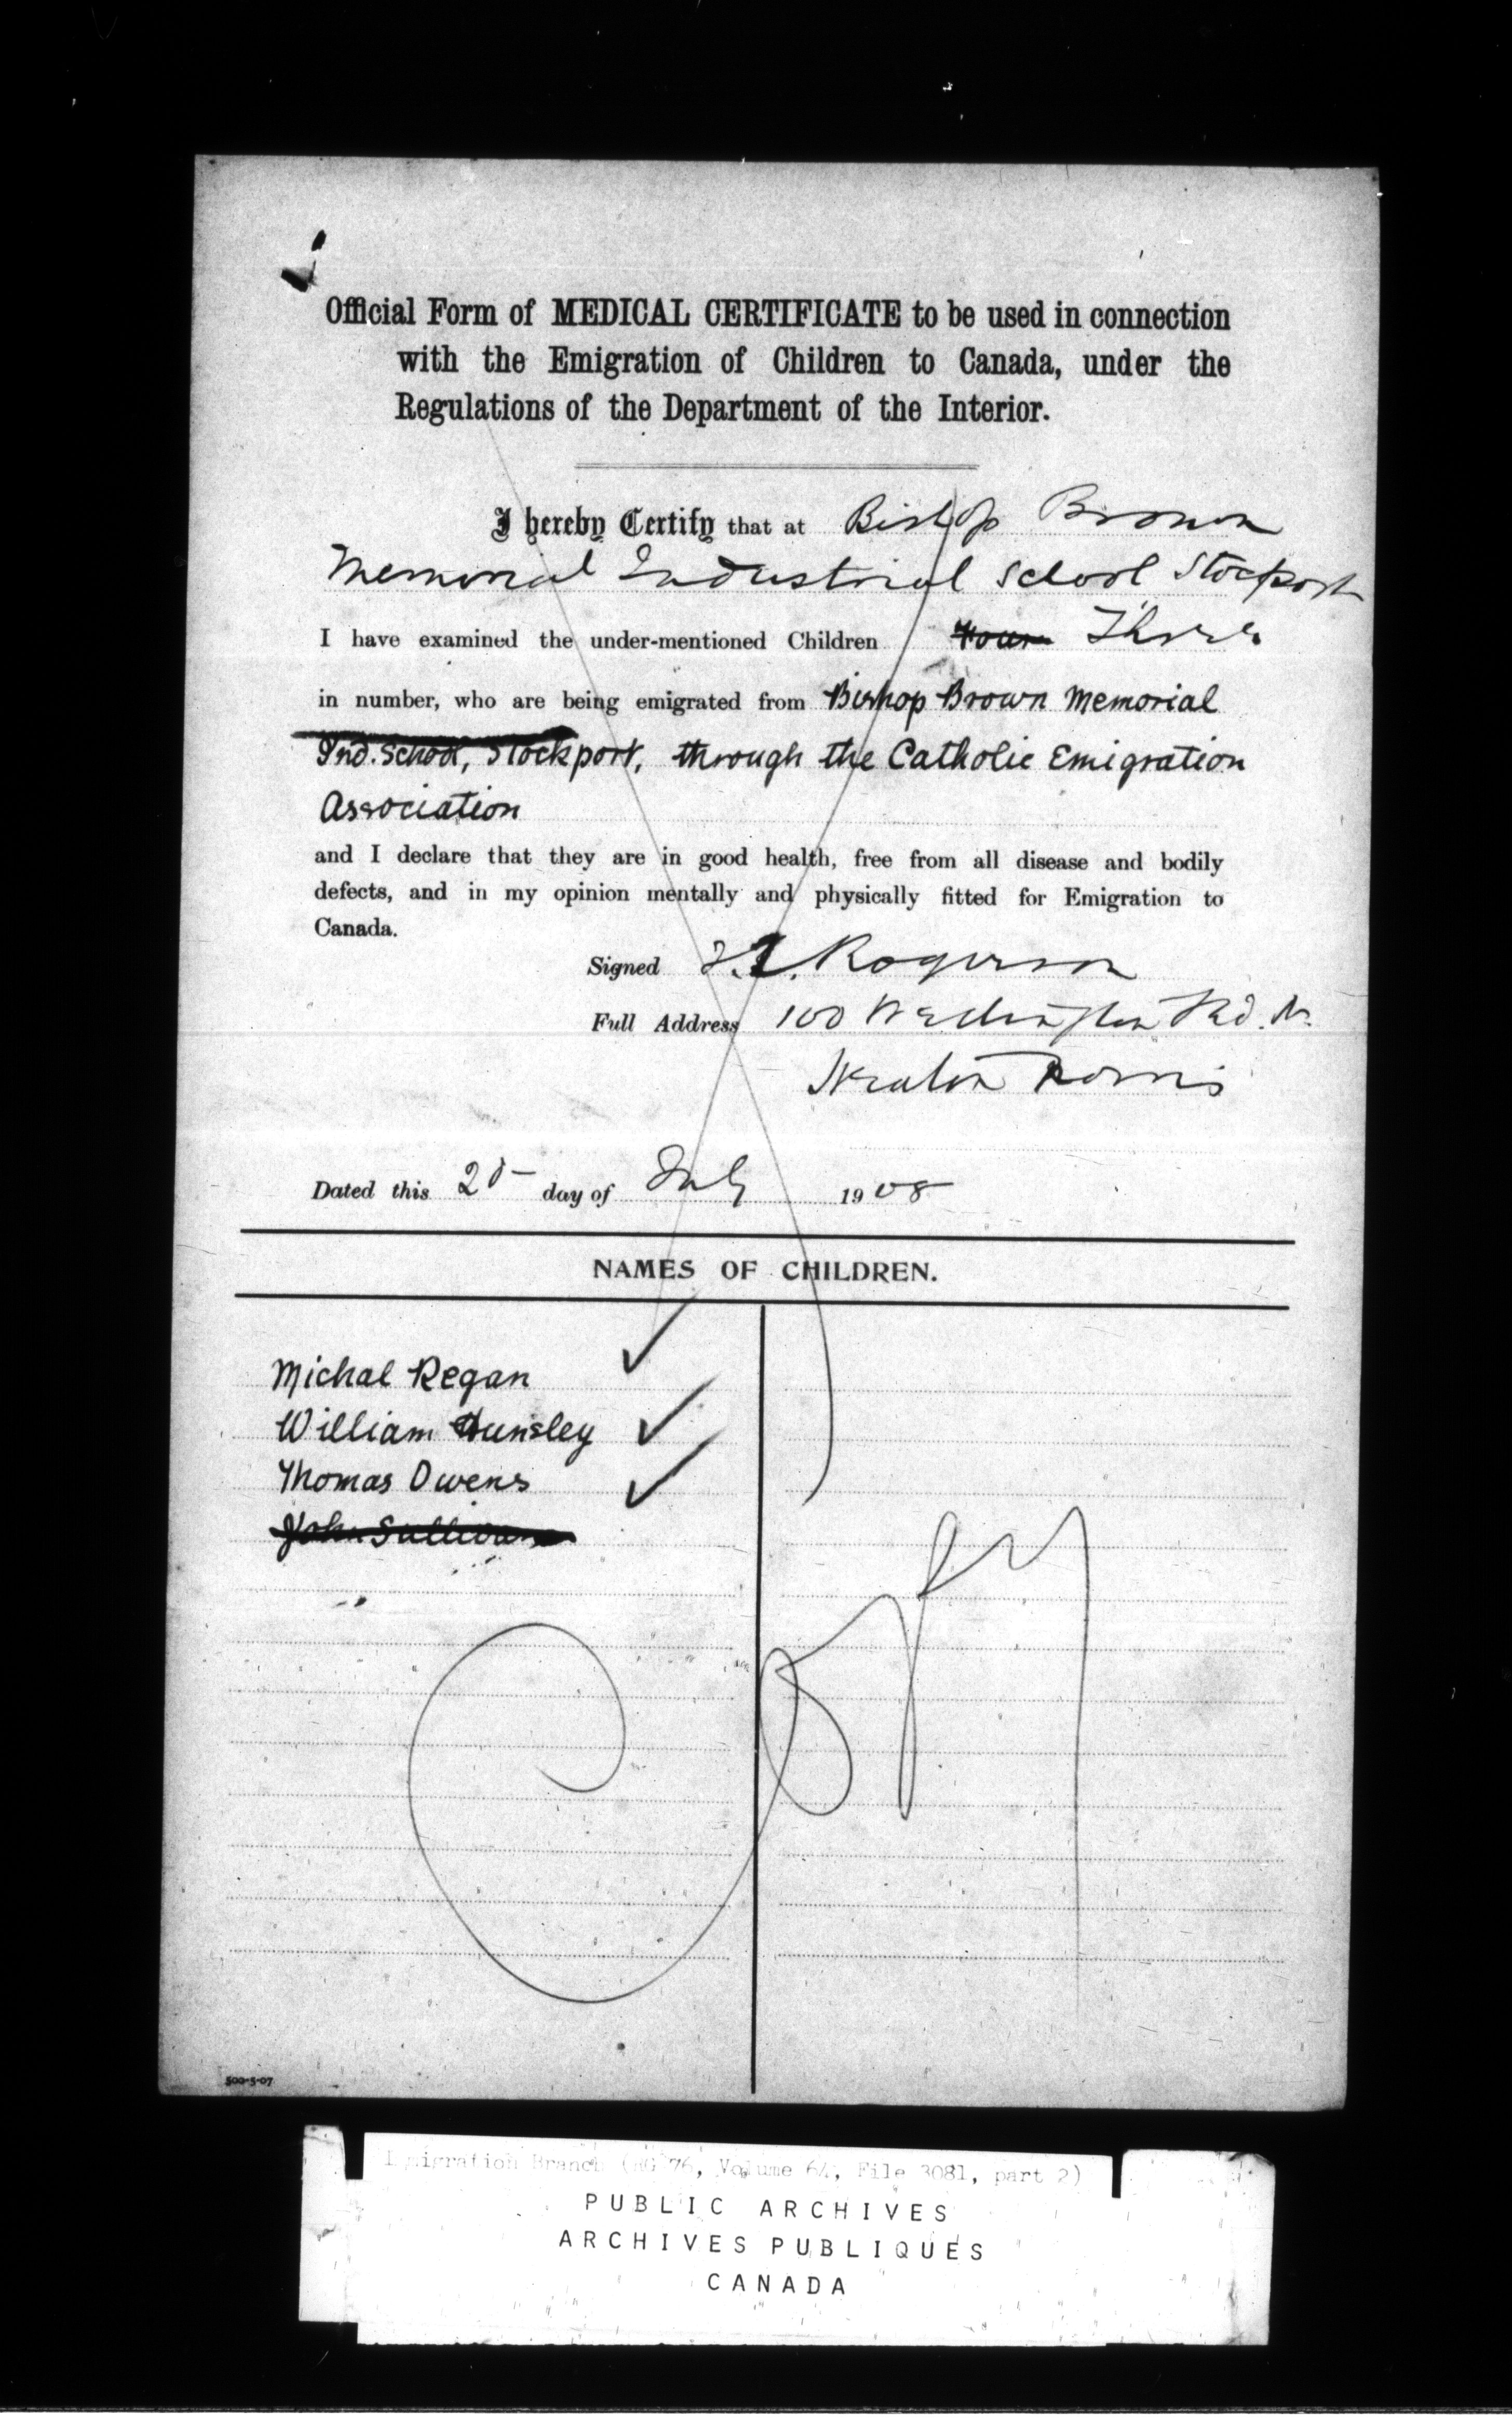 Official Form of MEDICAL CERTIFICATE to be used in connection
with the Emigration of Children to Canada, under the
Regulations of the Department of the Interior.
I hereby Certify that at Bishop Brown
Memorial Industrial School Stockport
I have examined the under-mentioned Children Four Three
in number, who are being emigrated from Bishop Brown Memorial
Ind. School, Stockport, through the Catholic Emigration
Association
and I declare that they are in good health, free from all disease and bodily
defects, and in my opinion mentally and physically fitted for Emigration to
Canada.
Signed Rogerson
Full Address 100 Wellington Rd. N.
Heaton Norris
Dated this day of July 1908
NAMES OF CHILDREN.
Michal Regan
William Hunsley
Thomas Owens
John Sullivan
Copy
500-5-07
Immigration Branch (RG 76, Volume 64, File 3081, part 2)
PUBLIC ARCHIVES
ARCHIVES PUBLIQUES
CANADA